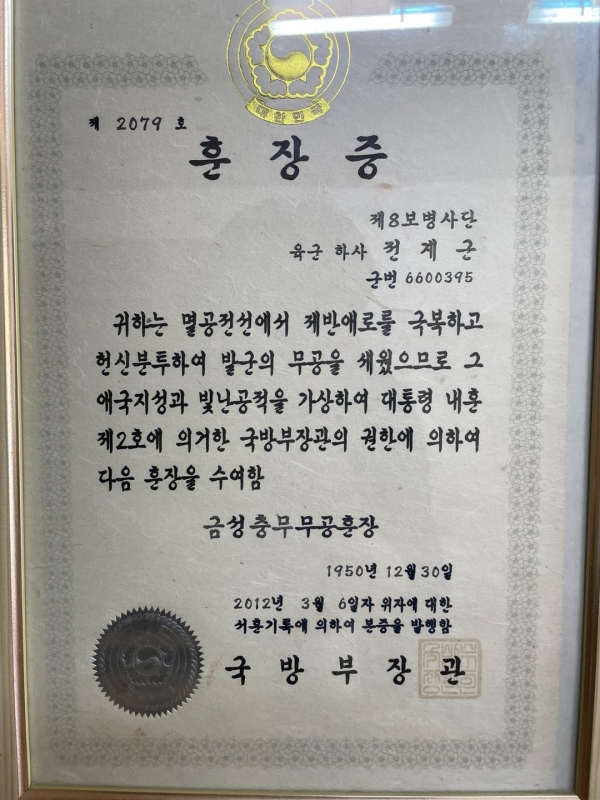 대한민국
제 2079 호
훈장증
제8보병사단
육군 하사 전계근
군번 6600395
귀하는 멸공전선에서 제반애로를 극복하고
헌신분투하여 발군의 무공을 세웠으므로 그
애국지성과 빛난공적을 가상하여 대통령 내훈
제2호에 의거한 국방부장관의 권한에 의하여
다음 훈장을 수여함
금성충무무공훈장
1950년 12월 30일
2012년 3월 6일자 위자에 대한
서훈기록에 의하여 본증을 발행함
국방부장관